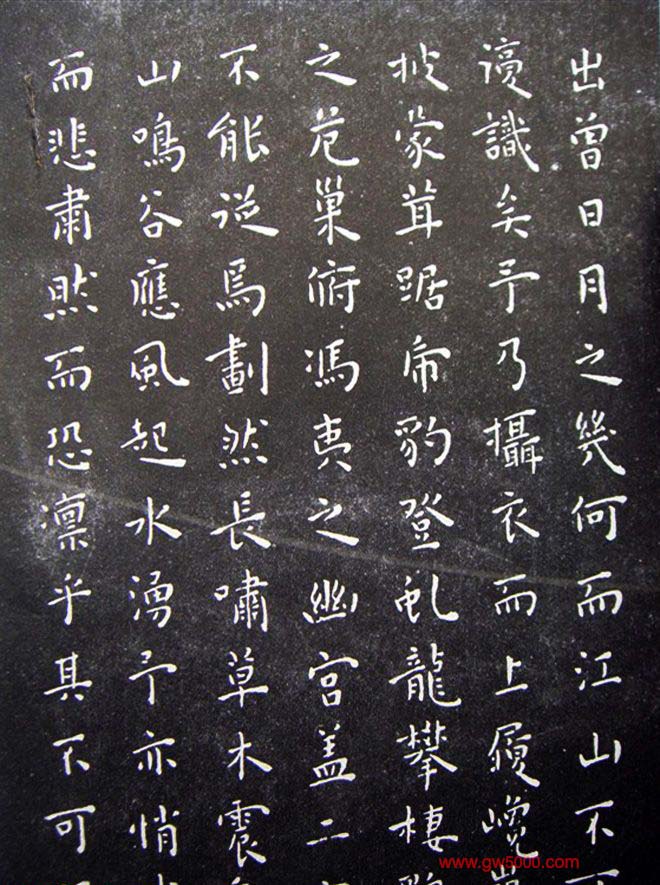 出曾日月之幾何而江山不可
復識矣予乃攝衣而上履巉巖
披蒙茸踞虎豹登虬龍攀棲鶻
之危巢俯馮夷之幽宮盖二
不能從焉劃然長嘯草木震
山鳴谷應風起水湧予亦悄
而悲肅然而恐凛乎其不可
www.gw5000.com